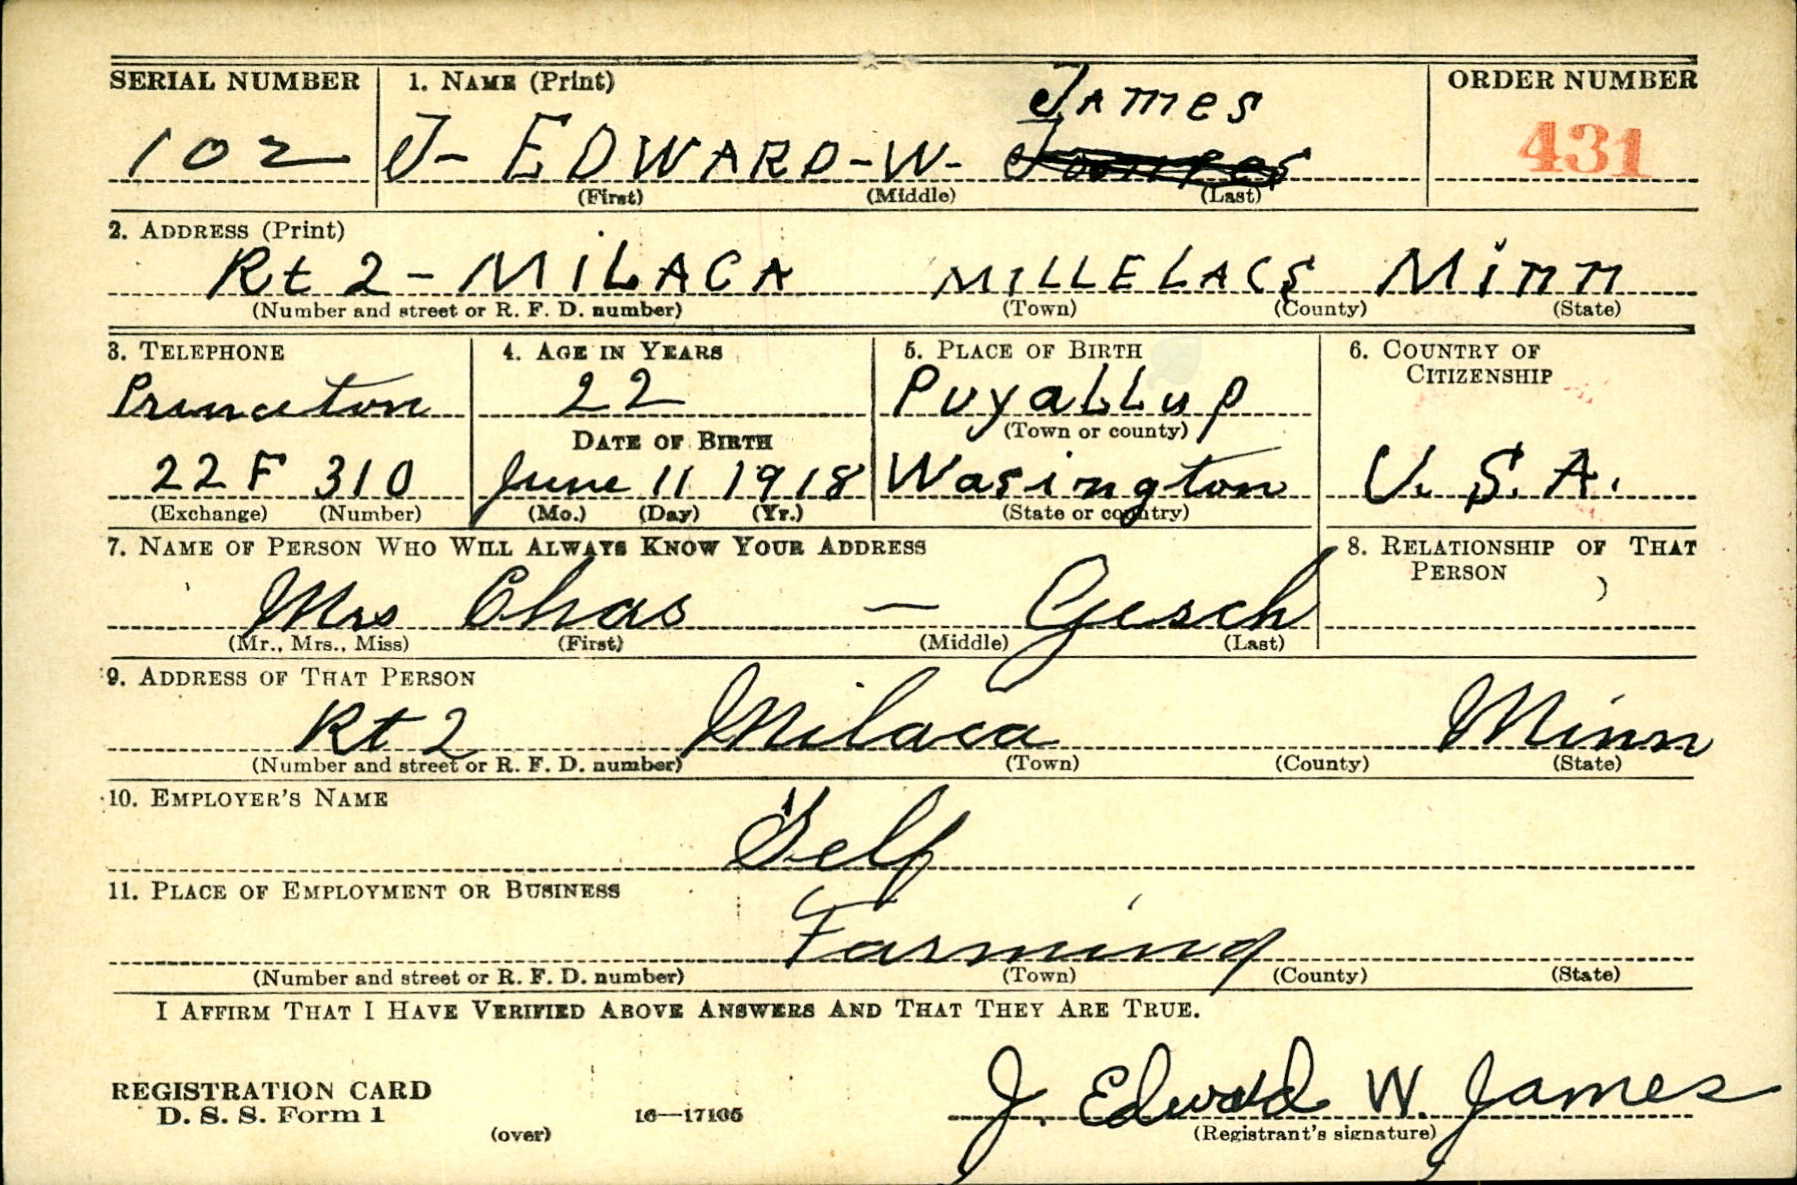 SERIAL NUMBER 1. NAME (Print) ORDER NUMBER
James
102 J- EDWARD-W- 431
(First) (Middle) (Last)
2. ADDRESS (Print)
Rt 2 - MILACA MILLELACS Minn
(Number and street or R. F. D. number) (Town) (County) (State)
3. TELEPHONE 4. AGE IN YEARS 5. PLACE OF BIRTH 6. COUNTRY OF
CITIZENSHIP
Princeton 22 PuyaLLup
(Town or county)
DATE OF BIRTH
22 F 310 June 11 1918 Wasington U. S. A.
(Exchange) (Number) (Mo.) (Day) (Yr.) (State or country)
7. NAME OF PERSON WHO WILL ALWAYS KNOW YOUR ADDRESS 8. RELATIONSHIP OF THAT
PERSON
Mrs Chas — Gesch
(Mr., Mrs., Miss) (First) (Middle) (Last)
9. ADDRESS OF THAT PERSON
Rt 2 Milaca Minn
(Number and street or R. F. D. number) (Town) (County) (State)
10. EMPLOYER'S NAME
Self
11. PLACE OF EMPLOYMENT OR BUSINESS
Farming
(Number and street or R. F. D. number) (Town) (County) (State)
I AFFIRM THAT I HAVE VERIFIED ABOVE ANSWERS AND THAT THEY ARE TRUE.
REGISTRATION CARD
D. S. S. Form 1 16—17105 J. Edward W. James
(over) (Registrant's signature)